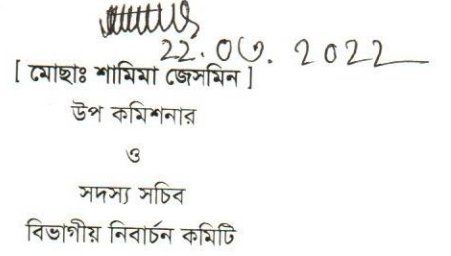 22.03.2022
[ মোছাঃ শামিমা জেসমিন ]
উপ কমিশনার
ও
সদস্য সচিব
বিভাগীয় নিবার্চন কমিটি